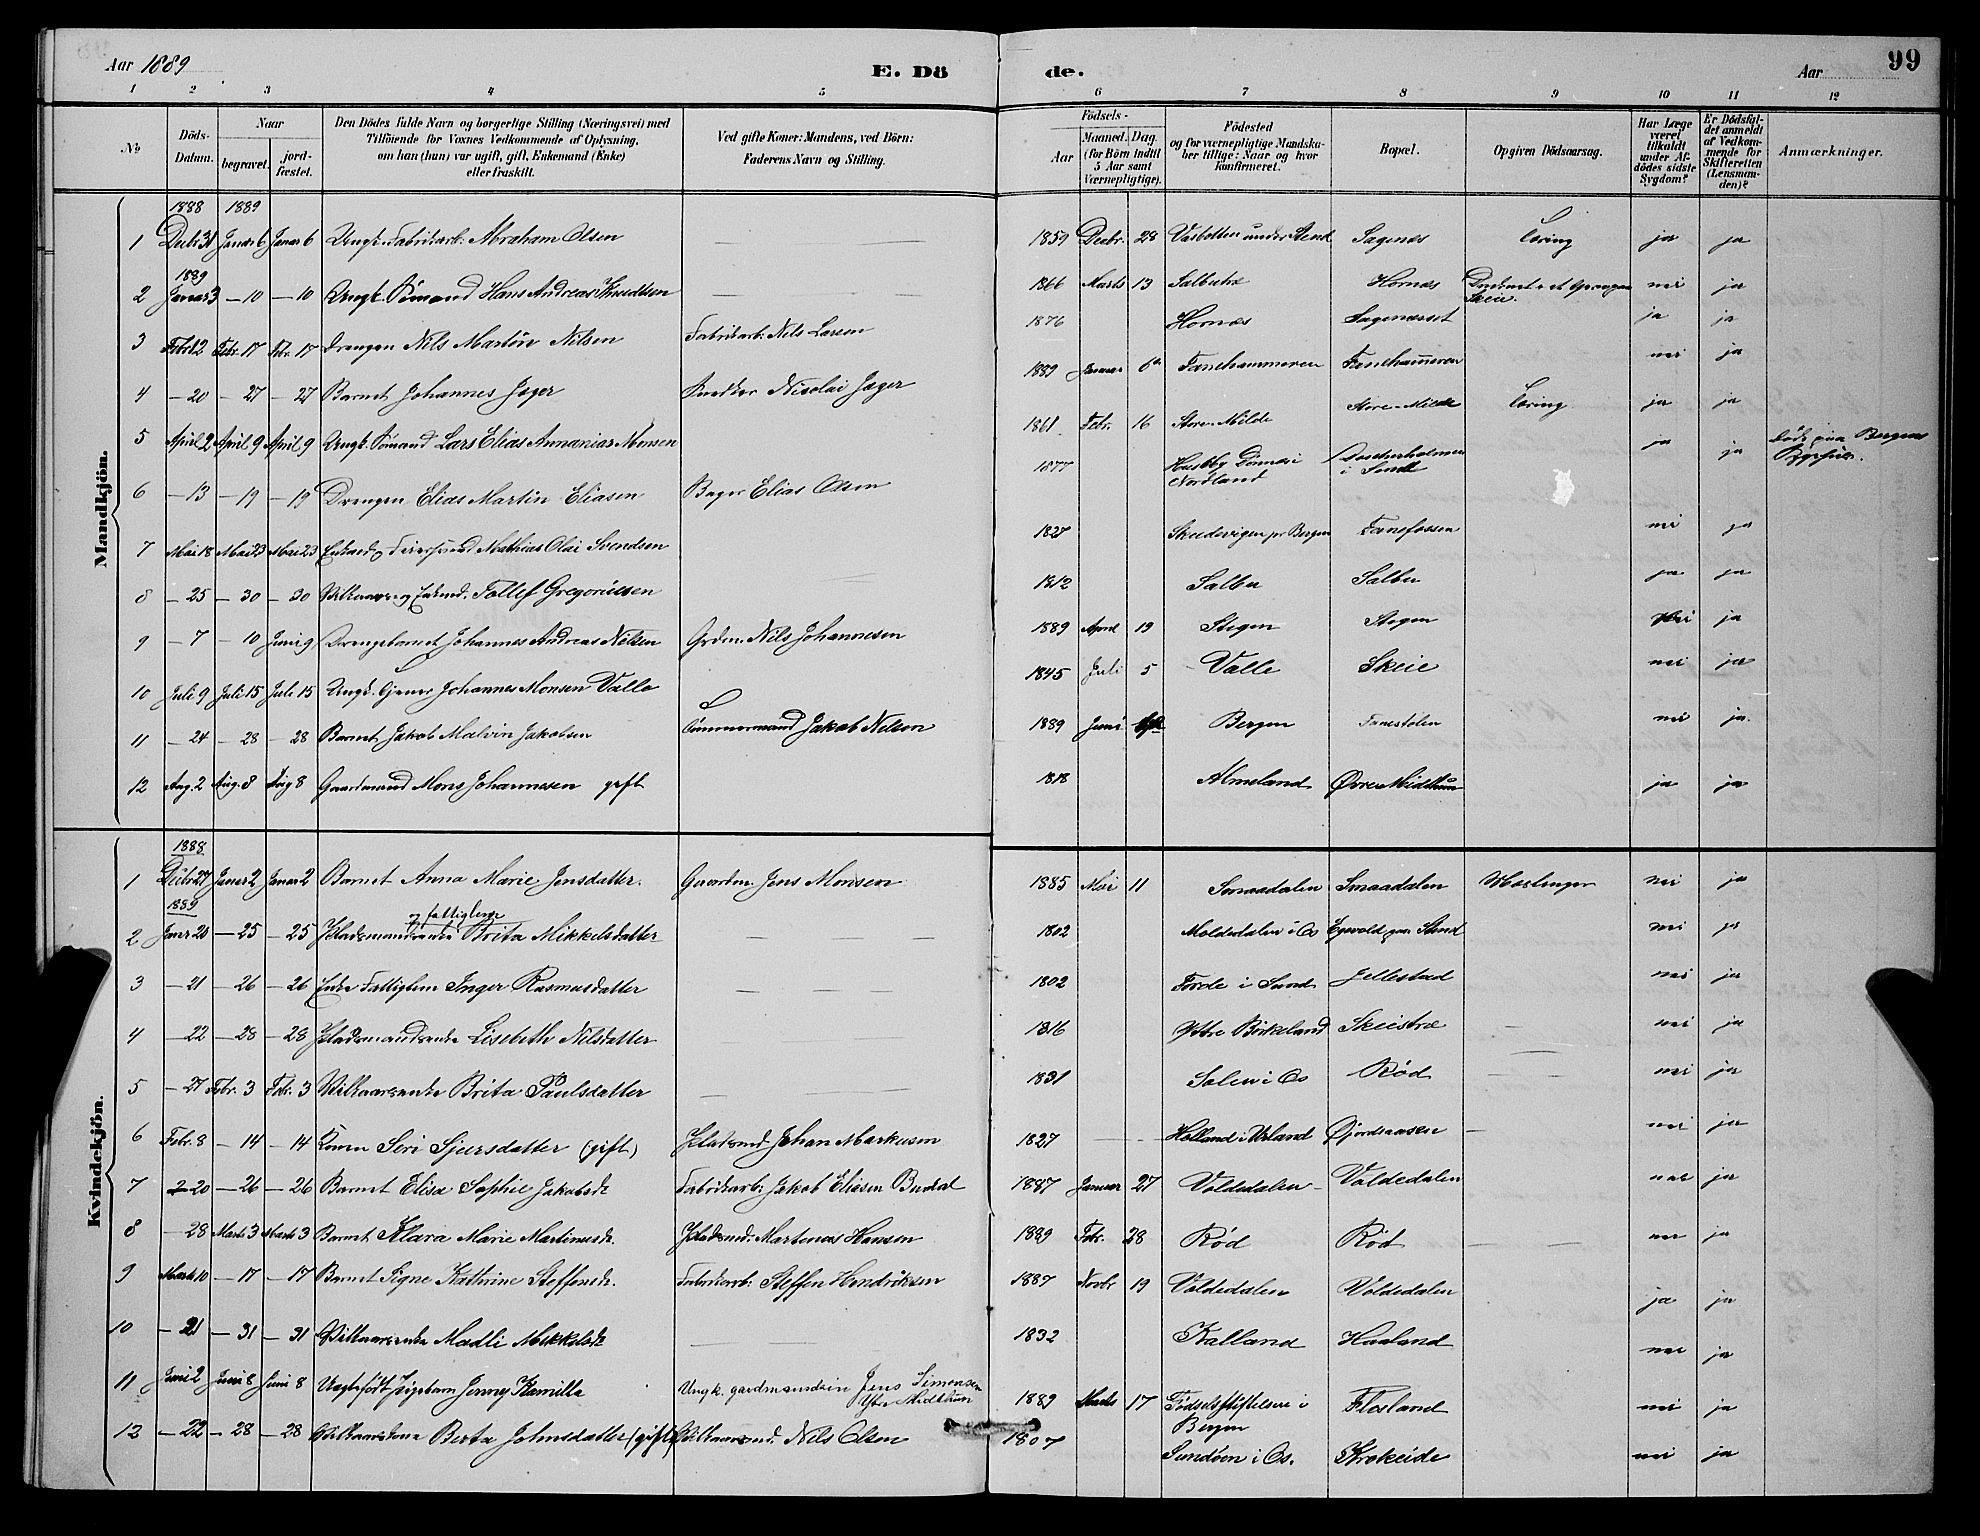 Aar 1889
E. Dö
de.
Aar
99
1 2 3 4 5 6 7 8 9 10 11 12
No
Döds-Datum.
Naar
begravet.
jord-fæstet.
Den Dödes fulde Navn og borgerlige Stilling (Næringsvei) med
Tilföiende for Voxnes Vedkommende af Oplysning,
om han (hun) var ugift, gift, Enkemand (Enke)
eller fraskilt.
Ved gifte Koner: Mandens, ved Börn:
Faderens Navn og Stilling.
Födsels-
Aar
Maaned. Dag.
(for Börn indtil
5 Aar samt
Værnepligtige).
Födested
og for værnepligtige Mandska-
ber tillige: Naar og hvor
konfirmeret.
Bopæl.
Opgiven Dödsaarsag.
Har Læge
været
tilkaldt
under Af-
dödes sidste
Sygdom?
Er Dödsfal-
det anmeldt
af Vedkom-
mende for
Skifteretten
(Lensman-
den)?
Anmærkninger.
Mandkjön.
1888 1889
1 Decbr 31 Januar 6 Januar 6 Ungk. Fabrikarb. Abraham Olsen 1859 Decbr. 28 under Stend Sagenæs Tæring ja ja
1889
2 Januar 3 — 10 — 10 Ungk. Sømand Hans Andreas Knudtsen 1866 Marts 13 Salbuhø Hornæs Skeie nei ja
3 Febr. 12 Febr. 17 Febr. 17 Drengen Nils Martin Nilsen Fabrikarb. Nils Larsen 1876 Hornæs ja ja
4 — 20 — 27 — 27 Barnet Johannes Jæger Snedker Nicolai Jæger 1889 Januar 6te Fanehammeren Fanehammeren nei ja
5 April 2 April 9 April 9 Ungk. Sømand Lars Elias Annanias Monsen 1861 Febr. 16 Store-Milde Store-Milde Tæring ja ja
6 — 13 — 19 — 19 Drengen Elias Martin Eliasen Bager Elias Olsen 1877 Husby Dønnes i Nordland ja ja Døde paa Bergens Sygehus.
7 Mai 18 Mai 23 Mai 23 Mathias Olai Svendsen 1827 Skudevigen pr Bergen Fanefossen nei ja
8 — 25 — 30 — 30 Tollef Gregoriussen 1812 Salbu Salbu ja ja
9 — 7 — 10 Juni 9 Drengebarnet Johannes Andreas Nilsen Grdm. Nils Johannesen 1889 April 19 Stegen Stegen nei ja
10 Juli 9 Juli 15 Juli 15 Ungk. Tjener Johannes Monsen Valle 1845 Juli 5 Valle Skeie nei ja
11 — 24 — 28 — 28 Barnet Jakob Malvin Jakobsen Tømmermand Jakob Nilsen 1889 Juni Bergen Fanestølen nei ja
12 Aug. 2 Aug. 8 Aug 8 Gaardmand Mons Johannesen gift 1818 Almeland Øvre Midttun ja ja
Kvindekjön.
1888
1 Decbr 27 Januar 2 Januar 2 Barnet Anna Marie Jensdatter. Gaardm. Jens Monsen 1885 Mai 11 Smaadalen Smaadalen Mæslinger nei ja
1889
og fattiglem
2 Januar 20 — 25 — 25 Pladsmandsenke Brita Mikkelsdatter 1802 Moldedalen i Os Egevold paa Stend nei ja
3 — 21 — 26 — 26 Enke Fattiglem Inger Rasmusdatter 1802 Førde i Sund Jellestad nei ja
4 — 22 — 28 — 28 Pladsmandsenke Lisebeth Nilsdatter 1816 Ytre Birkeland Skeistræ nei ja
5 — 27 Febr. 3 Febr. 3 Vilkaarsenke Brita Paulsdatter 1831 Solem i Os Rød nei ja
6 Febr. 8 — 14 — 14 Konen Seri Sjursdatter (gift) Pladsmd. Johan Markusen 1827 Holland i Urland Øjordsaasen nei ja
7 — 20 — 26 — 26 Barnet Elisa Sophie Jakobsdt. Fabrikarb. Jakob Eliasen Budal 1887 Januar 27 Voldedalen Voldedalen nei ja
8 — 28 Marts 3 Marts 3 Barnet Klara Marie Martinusdt. Pladsmd. Martinus Hansen 1889 Febr. 28 Rød Rød nei ja
9 Marts 10 — 17 — 17 Barnet Signe Kathrine Steffensdt. Fabrikarb. Steffen Hendriksen 1887 Novbr 19 Voldedalen Voldedalen ja ja
10 — 21 — 31 — 31 Vilkaarsenke Madli Mikkelsdt. 1832 Kalland Haaland nei ja
11 Juni 2 Juni 8 Juni 8 Uægtefødt Pigebarn Jenny Kamilla Ungk. gardmandssøn Jens Simonsen Ytre Midtthun 1889 Marts 17 Fødselsstiftelsen i Bergen Flesland nei ja
12 — 22 — 28 — 28 Vilkaarskone Berta Johnsdatter (gift) Vilkaarsmd. Nils Olsen 1807 Sundøen i Os. Krokeide nei ja